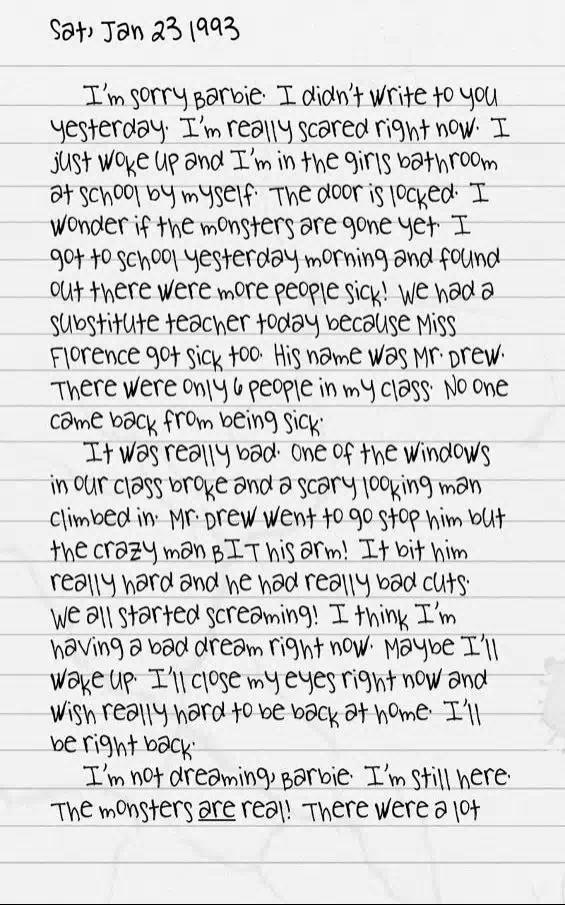 Sat, Jan 23 1993
I'm sorry Barbie. I didn't write to you
yesterday. I'm really scared right now. I
just woke up and I'm in the girls bathroom
at school by myself. The door is locked. I
wonder if the monsters are gone yet. I
got to school yesterday morning and found
out there were more people sick! We had a
substitute teacher today because Miss
Florence got sick too. His name was Mr. Drew.
There were only 6 people in my class. No one
came back from being sick.
It was really bad. One of the windows
in our class broke and a scary looking man
climbed in. Mr. Drew went to go stop him but
the crazy man BIT his arm! It bit him
really hard and he had really bad cuts.
We all started screaming! I think I'm
having a bad dream right now. Maybe I'll
wake up. I'll close my eyes right now and
wish really hard to be back at home. I'll
be right back.
I'm not dreaming, Barbie. I'm still here.
The monsters are real! There were a lot